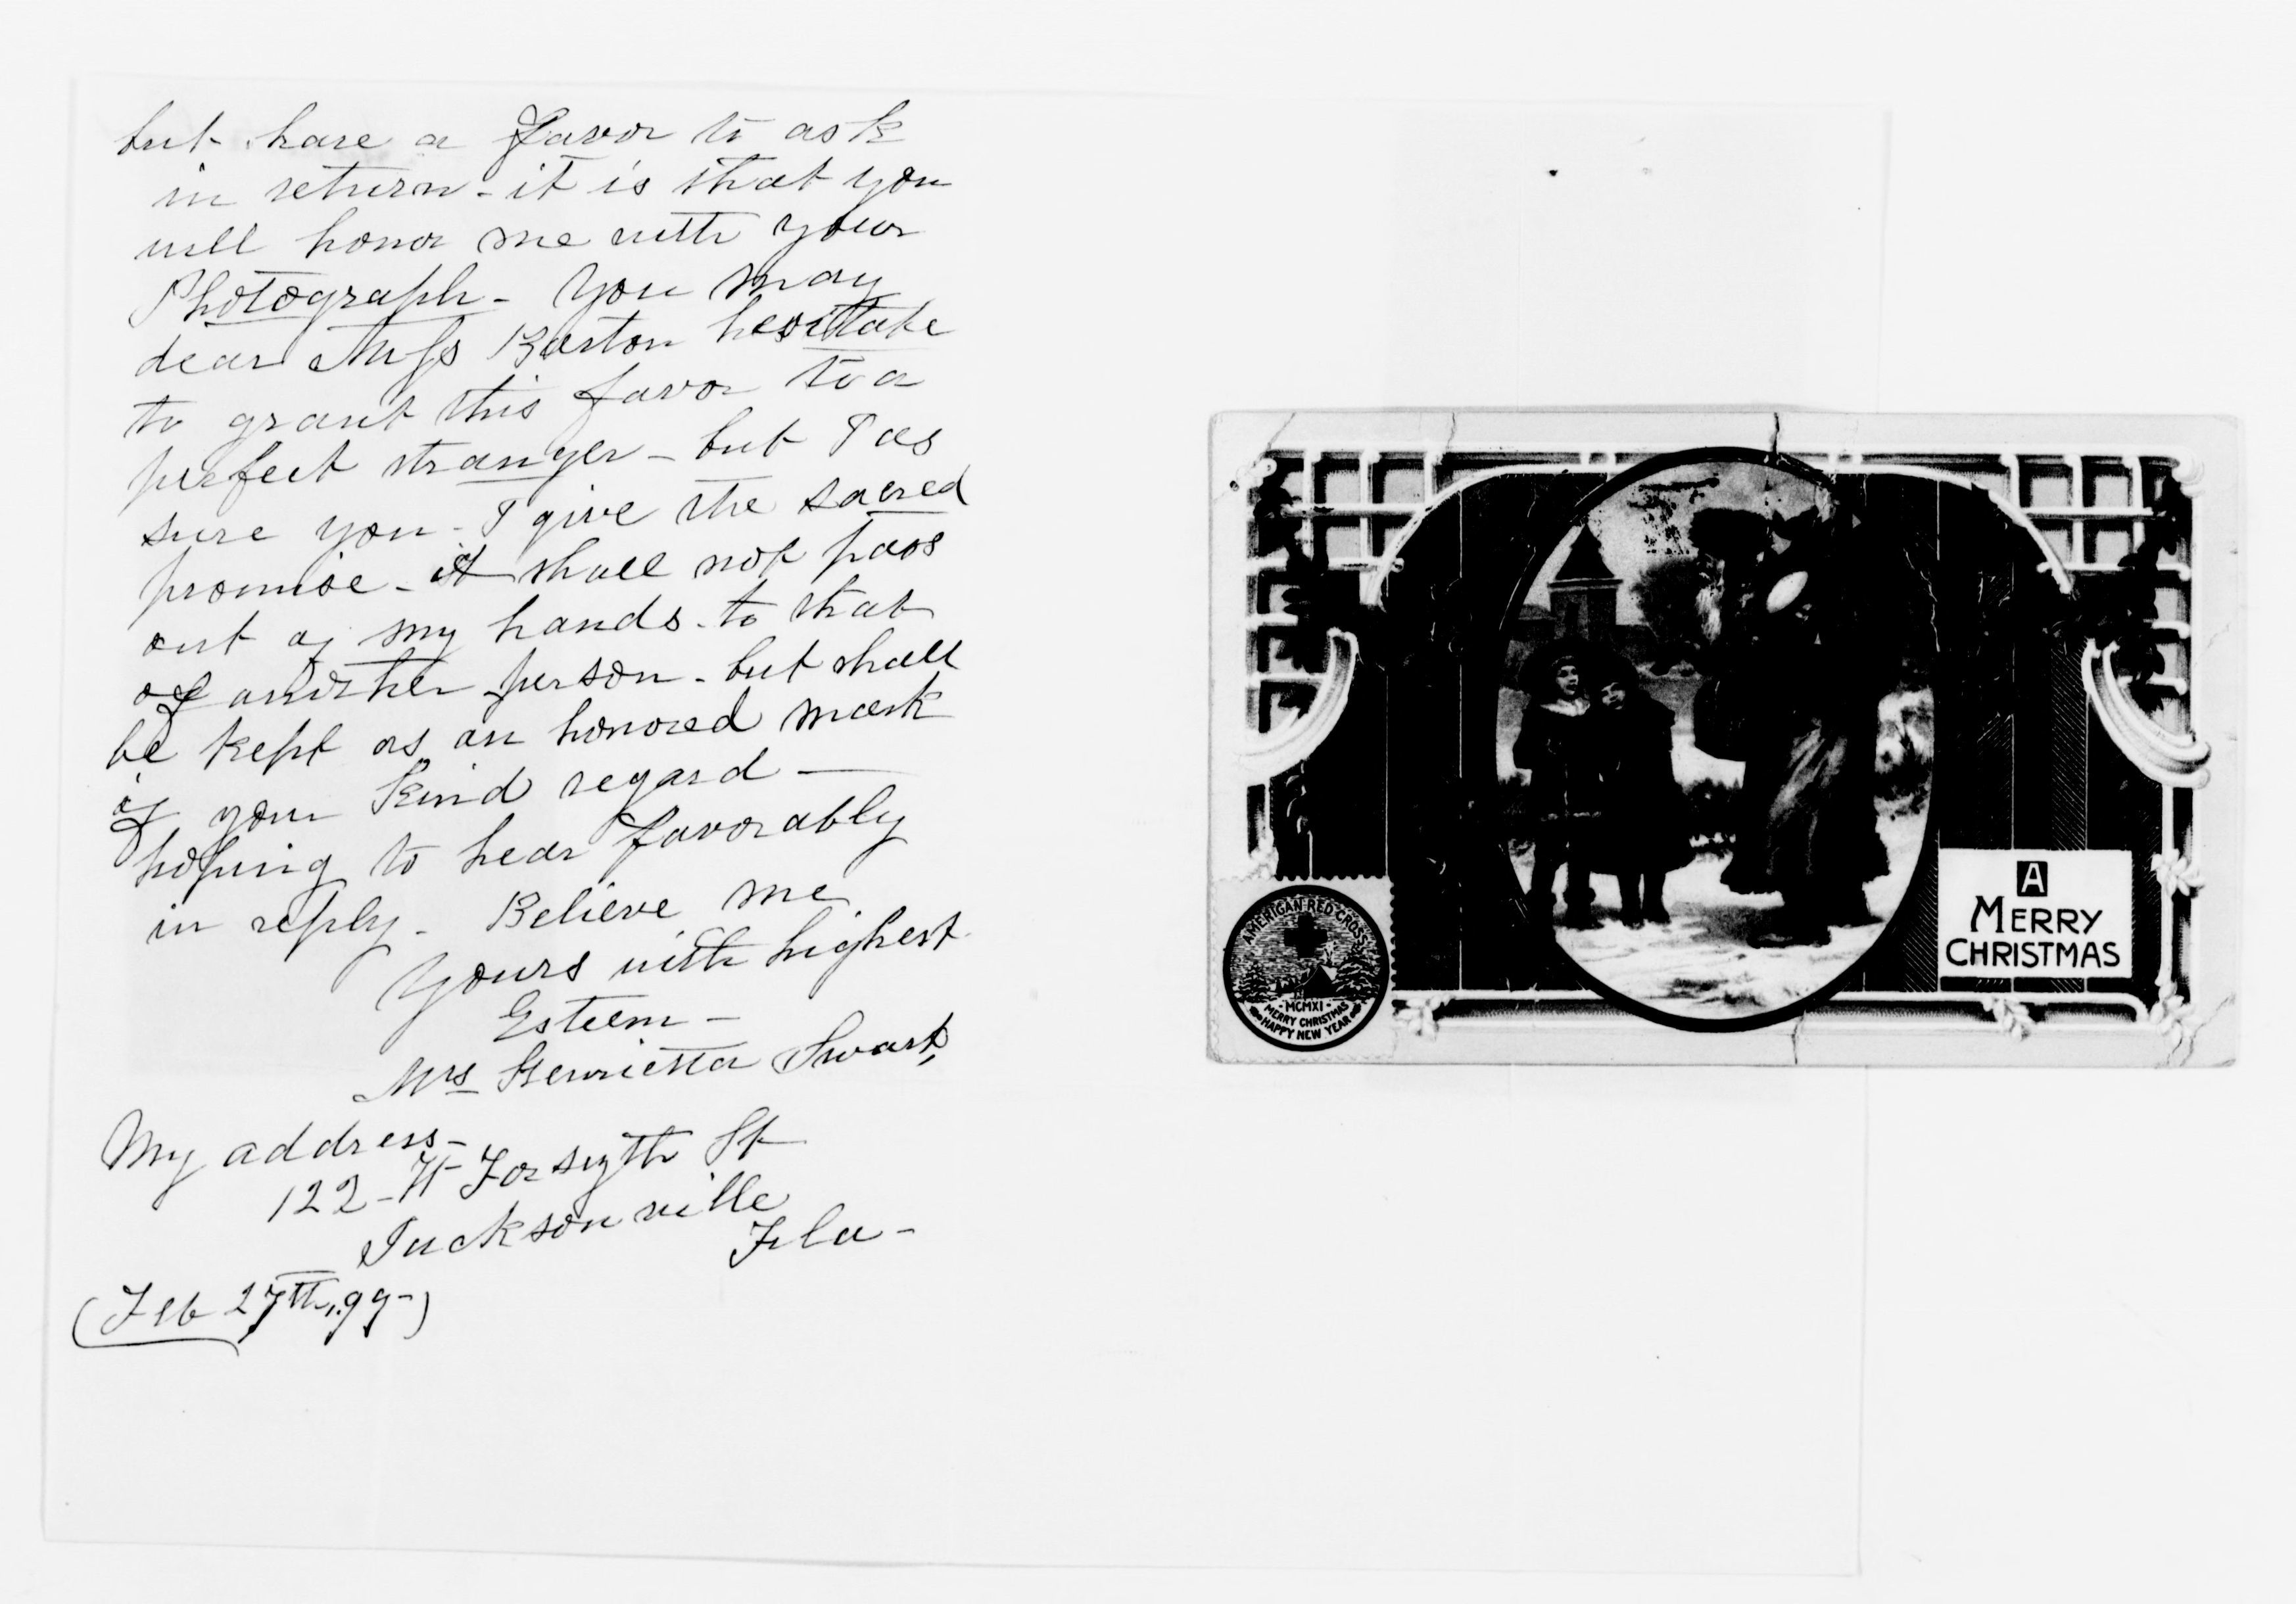 but have a favor to ask
in return - it is that you
will honor me with your
Photograph - You may
dear Miss Barton hesitate
to grant this favor to a
perfect stranger - but I as
sure you - I give the sacred
promise - it shall not pass
out of my hands - to that
of another person - but shall
be kept as an honored mark
of your kind regard —
hoping to hear favorably
in reply - Believe me
Yours with highest
Esteem -
Mrs Henrietta Swart,
My address -
122 - W Forsyth St
Jacksonville
Fla -
(Feb 27th, 99 -)
AMERICAN RED CROSS
MCMXI
MERRY CHRISTMAS
HAPPY NEW YEAR
A
MERRY
CHRISTMAS